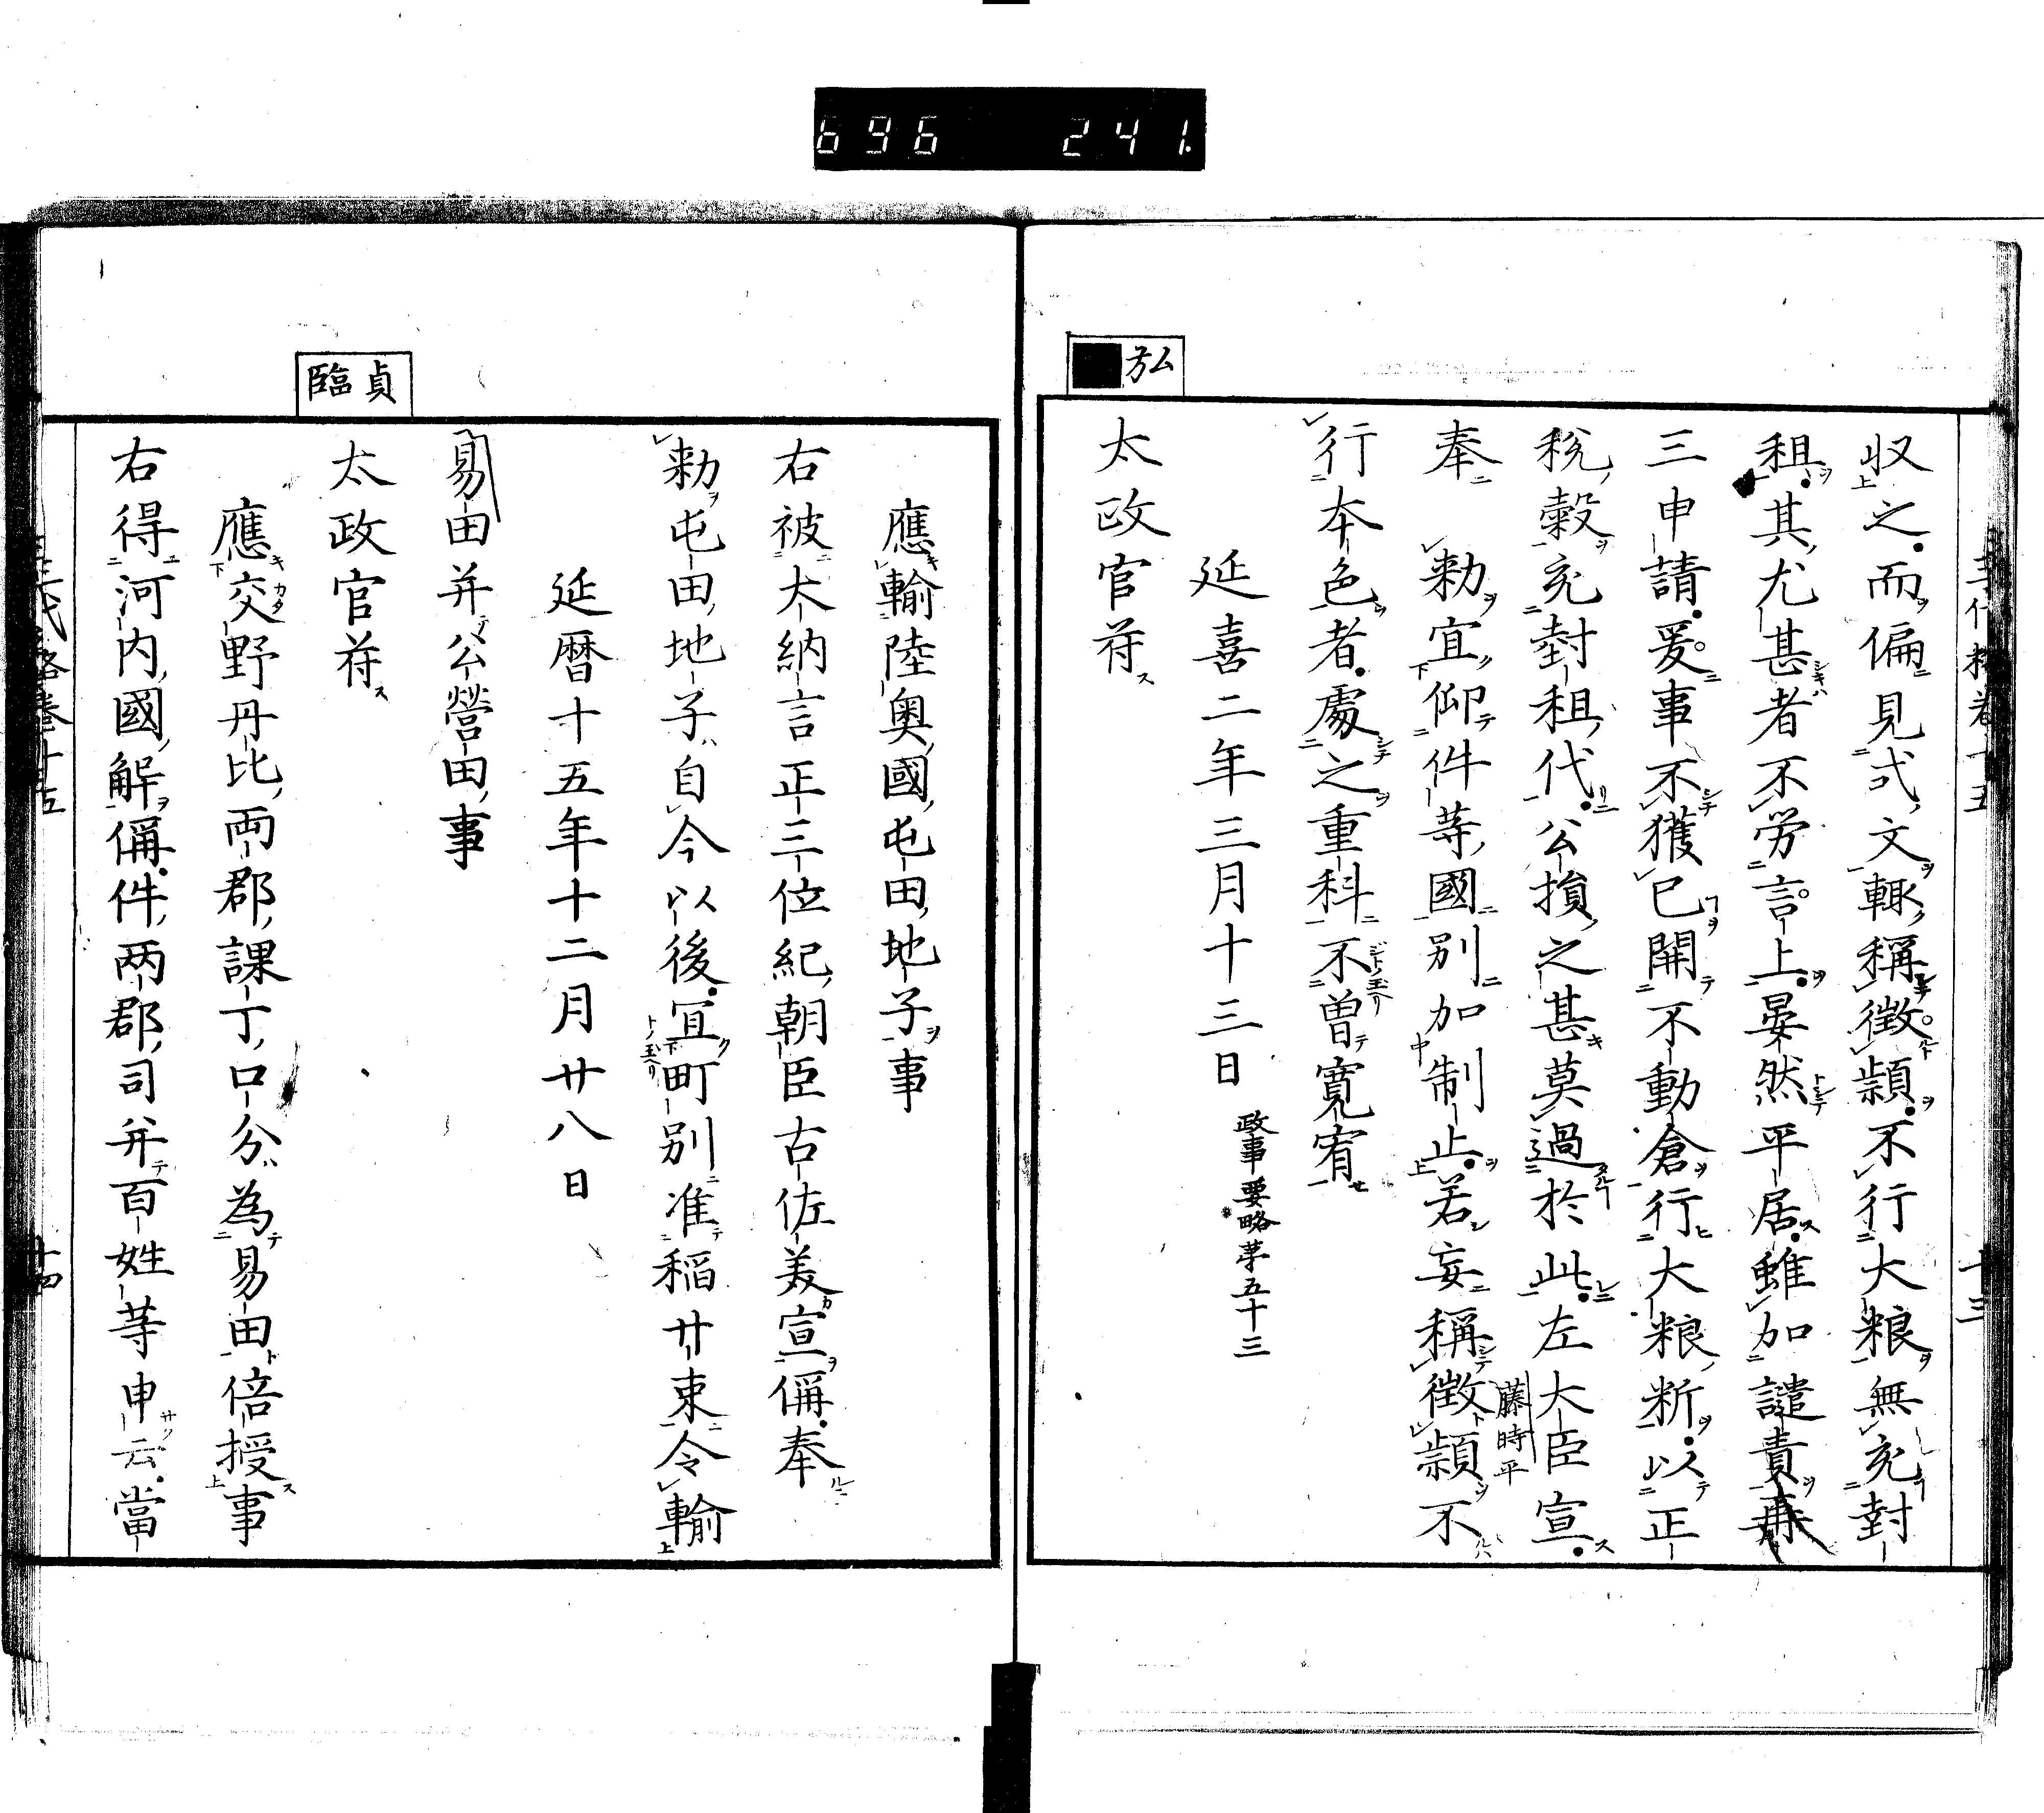 696 241.
弘
収之而偏見式文輙稱徴頴不行大粮無充封
租其尤甚者不労言上晏然平居雖加譴責再
三申請爰事不獲已開不動倉行大粮料以正
税穀充封租代公損之甚莫過於此左大臣宣
藤時平
奉 勅宜仰件等國別加制止若妄稱徴頴不
行本色者處之重科不曽寛宥
延喜二年三月十三日 政事要略苐五十三
太政官苻
應輸陸奥國屯田地子事
右被大納言正三位紀朝臣古佐美宣偁奉
勅屯田地子自今以後宜町別准稲廿束令輸
延暦十五年十二月廿八日
易田并公營田事
貞
臨
太政官苻
應交野丹比両郡課丁口分為易田倍授事
右得河内國解偁件两郡司并百姓等申云當